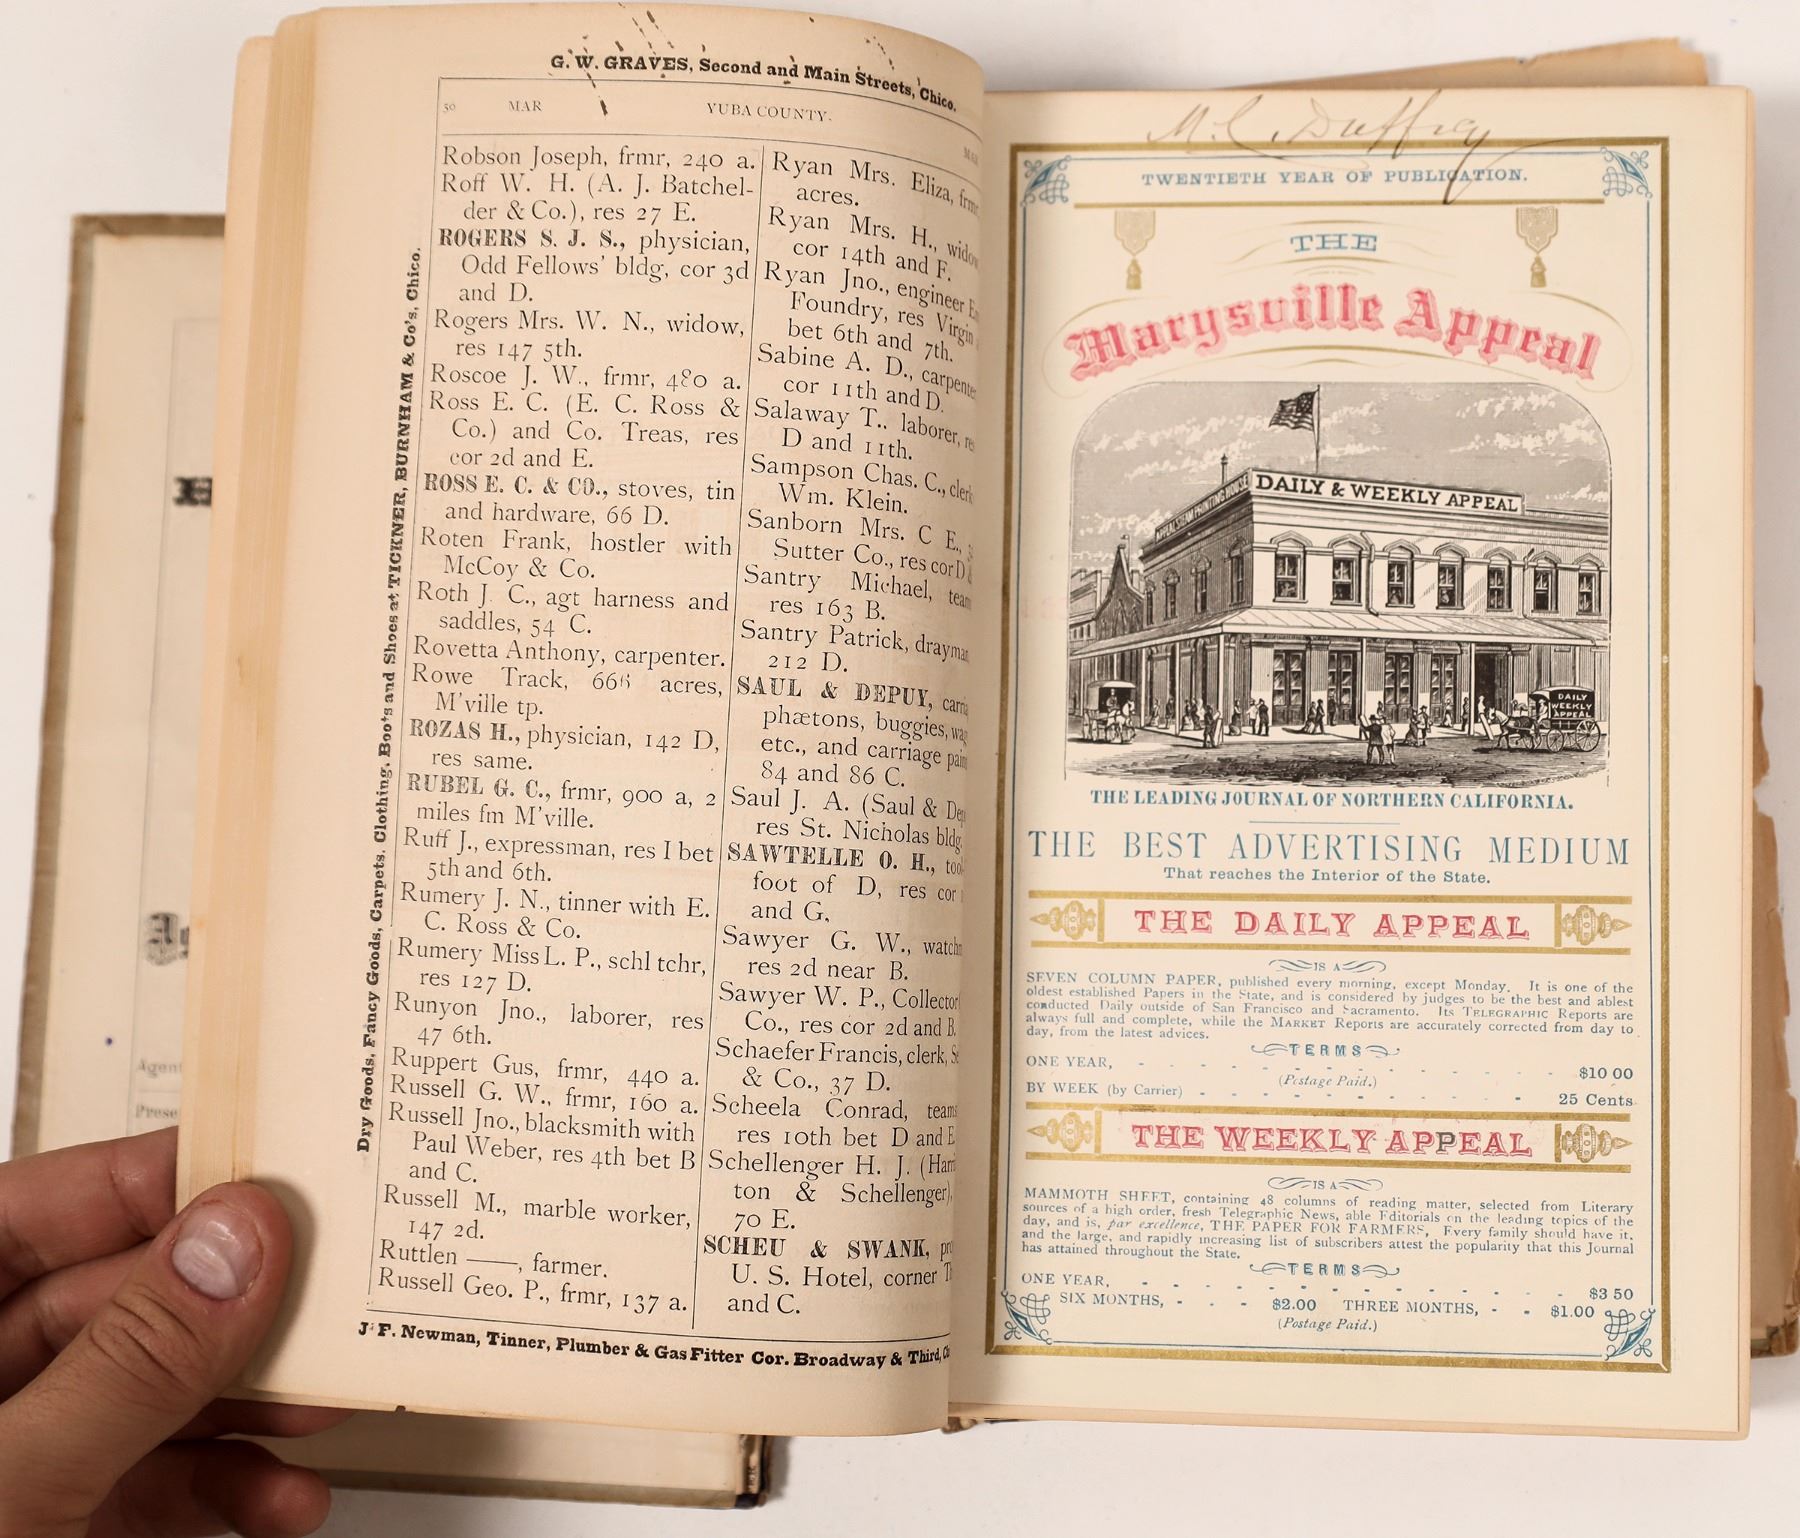 G. W. GRAVES, Second and Main Streets, Chico.
50 MAR YUBA COUNTY.
Dry Goods, Fancy Goods, Carpets, Clothing, Boots and Shoes at TICKNER, BURNHAM & Co's, Chico.
Robson Joseph, frmr, 240 a.
Roff W. H. (A. J. Batchel-
der & Co.), res 27 E.
ROGERS S. J. S., physician,
Odd Fellows' bldg, cor 3d
and D.
Rogers Mrs. W. N., widow,
res 147 5th.
Roscoe J. W., frmr, 480 a.
Ross E. C. (E. C. Ross &
Co.) and Co. Treas, res
cor 2d and E.
ROSS E. C. & CO., stoves, tin
and hardware, 66 D.
Roten Frank, hostler with
McCoy & Co.
Roth J. C., agt harness and
saddles, 54 C.
Rovetta Anthony, carpenter.
Rowe Track, 666 acres,
M'ville tp.
ROZAS H., physician, 142 D,
res same.
RUBEL G. C., frmr, 900 a, 2
miles fm M'ville.
Ruff J., expressman, res I bet
5th and 6th.
Rumery J. N., tinner with E.
C. Ross & Co.
Rumery Miss L. P., schl tchr,
res 127 D.
Runyon Jno., laborer, res
47 6th.
Ruppert Gus, frmr, 440 a.
Russell G. W., frmr, 160 a.
Russell Jno., blacksmith with
Paul Weber, res 4th bet B
and C.
Russell M., marble worker,
147 2d.
Ruttlen ——, farmer.
Russell Geo. P., frmr, 137 a.
Ryan Mrs. Eliza, frmr
acres.
Ryan Mrs. H., widow
cor 14th and F.
Ryan Jno., engineer E
Foundry, res Virgin
bet 6th and 7th.
Sabine A. D., carpente
cor 11th and D.
Salaway T., laborer, res
D and 11th.
Sampson Chas. C., clerk
Wm. Klein.
Sanborn Mrs. C E.,
Sutter Co., res cor D &
Santry Michael, team
res 163 B.
Santry Patrick, drayman
212 D.
SAUL & DEPUY, carria
phætons, buggies, wag
etc., and carriage pain
84 and 86 C.
Saul J. A. (Saul & Dep
res St. Nicholas bldg.
SAWTELLE O. H., tool
foot of D, res cor
and G.
Sawyer G. W., watchm
res 2d near B.
Sawyer W. P., Collector
Co., res cor 2d and B.
Schaefer Francis, clerk, Se
& Co., 37 D.
Scheela Conrad, teams
res 10th bet D and E
Schellenger H. J. (Harri
ton & Schellenger),
70 E.
SCHEU & SWANK, pr
U. S. Hotel, corner T
and C.
J. F. Newman, Tinner, Plumber & Gas Fitter Cor. Broadway & Third,
M. C. Duffrey
TWENTIETH YEAR OF PUBLICATION.
THE
Marysville Appeal
APPEAL STEAM PRINTING HOUSE
DAILY & WEEKLY APPEAL
DAILY
WEEKLY
APPEAL
THE LEADING JOURNAL OF NORTHERN CALIFORNIA.
THE BEST ADVERTISING MEDIUM
That reaches the Interior of the State.
THE DAILY APPEAL
IS A
SEVEN COLUMN PAPER, published every morning, except Monday. It is one of the
oldest established Papers in the State, and is considered by judges to be the best and ablest
conducted Daily outside of San Francisco and Sacramento. Its TELEGRAPHIC Reports are
always full and complete, while the MARKET Reports are accurately corrected from day to
day, from the latest advices.
TERMS
ONE YEAR, - - - - - - - - - - $10 00
(Postage Paid.)
BY WEEK (by Carrier) - - - - - - - - 25 Cents.
THE WEEKLY APPEAL
IS A
MAMMOTH SHEET, containing 48 columns of reading matter, selected from Literary
sources of a high order, fresh Telegraphic News, able Editorials on the leading topics of the
day, and is, par excellence, THE PAPER FOR FARMERS, Every family should have it,
and the large, and rapidly increasing list of subscribers attest the popularity that this Journal
has attained throughout the State.
TERMS
ONE YEAR, - - - - - - - - - - $3 50
SIX MONTHS, - - $2.00 THREE MONTHS, - - $1.00
(Postage Paid.)
Agent
Prese